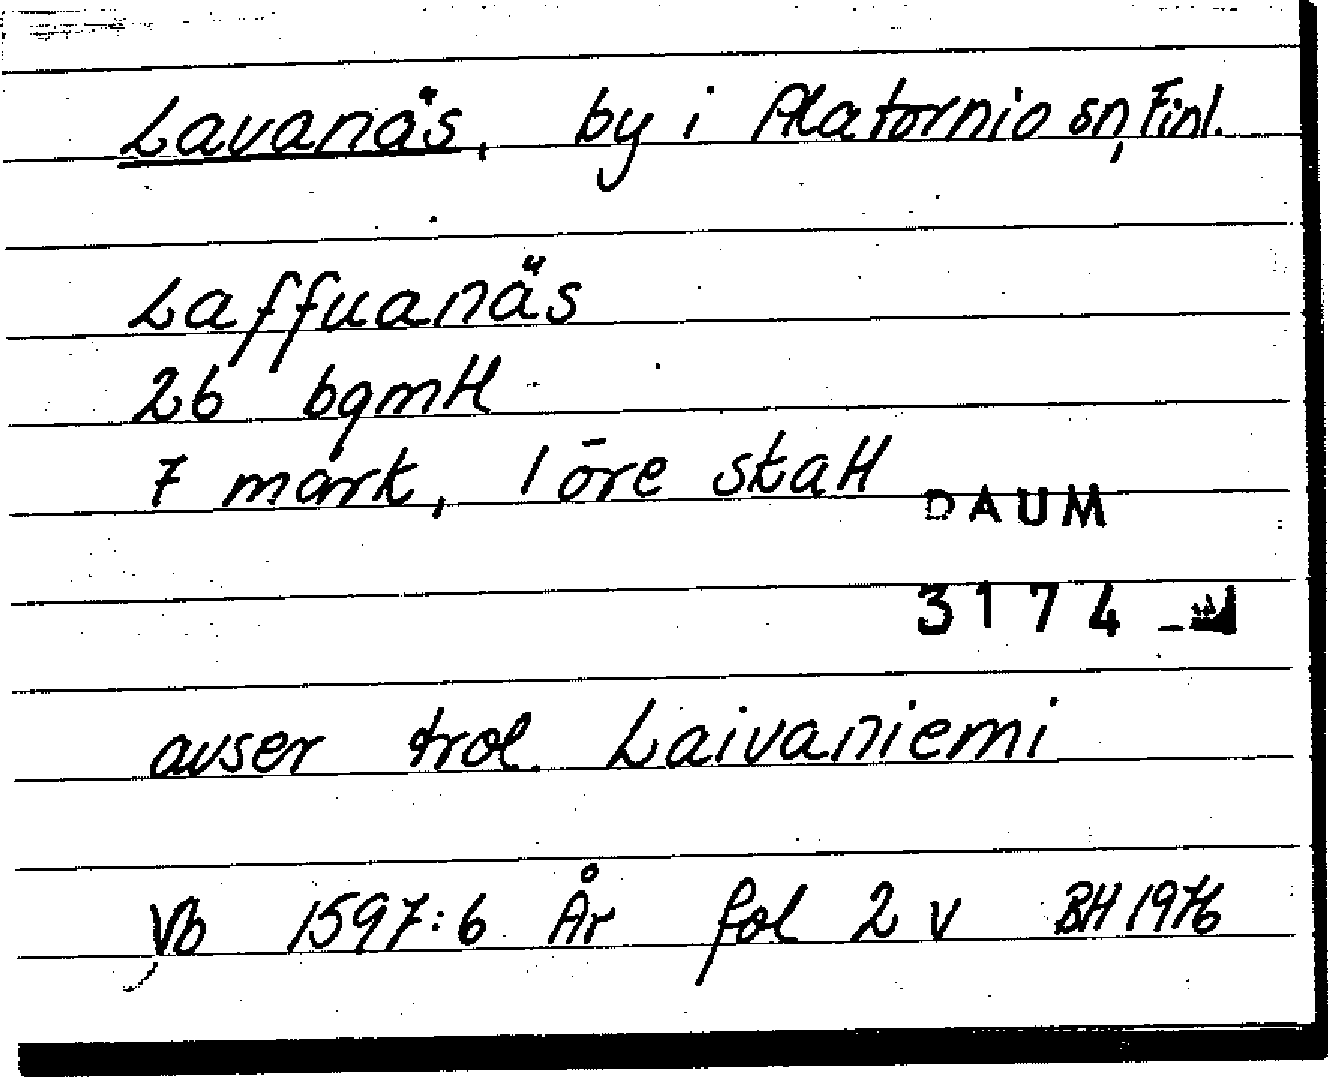 Lavanäs, by i Alatornio sn, Finl.
Laffuanäs
26 bgmH
7 mark, 1 öre skatt
DAUM
3174
avser trol. Laivaniemi
Vb 1597:6 År fol 2 v BH 1976